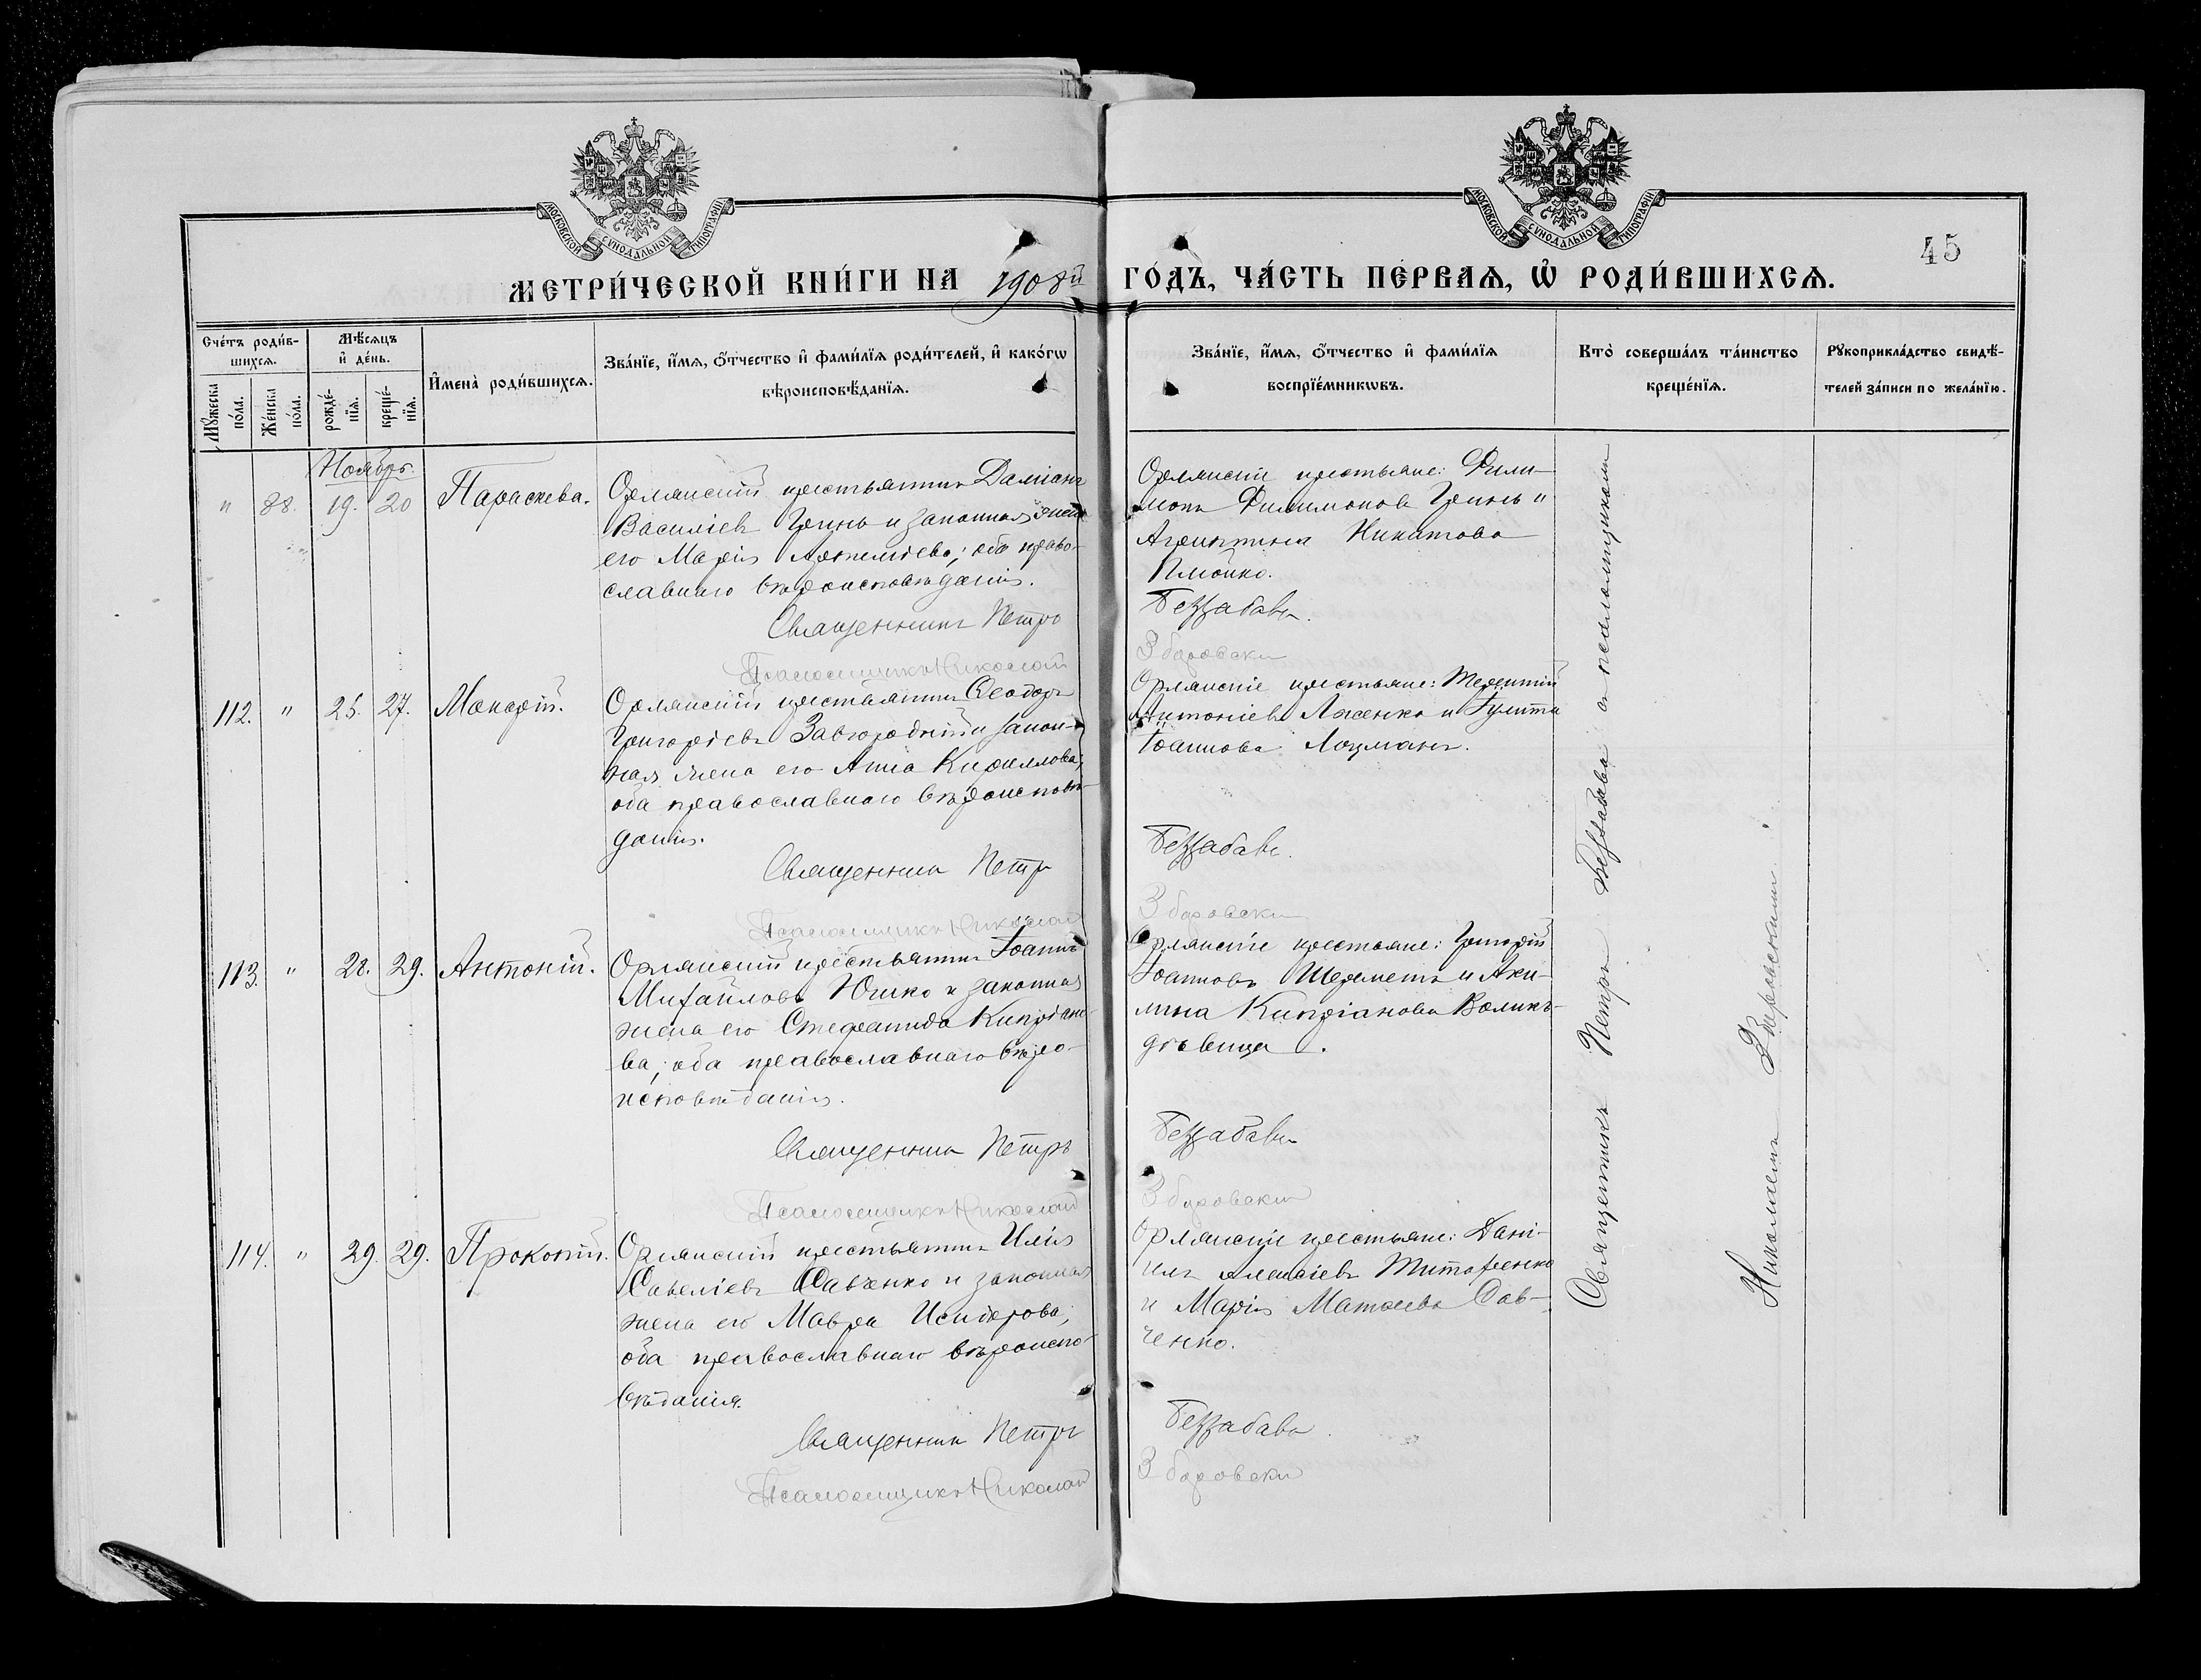 МОСКОВСКОЙ СУНОДАЛЬНОЙ ТИПОГРАФІИ
МОСКОВСКОЙ СУНОДАЛЬНОЙ ТИПОГРАФІИ
45
МЕТРИ́ЧЕСКОЙ КНИ́ГИ НА 1908й ГО́ДЪ, ЧА́СТЬ ПЕ́РВАѦ, Ѽ РОДИ́ВШИХСѦ.
Сче́тъ роди́в-
шихсѧ.
Мѣ́сѧцъ
и҆ де́нь.
Мꙋ́жеска
по́ла.
Же́нска
по́ла.
рожде́-
нїѧ.
креще́-
нїѧ.
И҆мена̀ роди́вшихсѧ.
Зва́нїе, и҆́мѧ, ѻ҆́тчество и҆ фами́лїѧ роди́телей, и҆ како́гѡ
вѣроисповѣ́данїѧ.
Зва́нїе, и҆́мѧ, ѻ҆́тчество и҆ фами́лїѧ
воспрїе́мникѡвъ.
Кто̀ соверша́лъ та́инство
креще́нїѧ.
Рꙋкоприкла́дство свидѣ́-
телей за́писи по жела́нїю.
Ноябрь.
" 88. 19. 20 Параскева.
Орлянскій крестьянинъ Даміанъ
Василіевъ Гринь и законная жена
его Марія Артеміева; оба право-
славнаго вѣроисповѣданія.
Священникъ Петръ
Псаломщикъ Николай
Орлянскіе крестьяне: Фили-
монъ Филимоновъ Гринь и
Агриппина Никитова
Беззабава.
Зборовскій
112. " 25. 27. Макарій.
Орлянскій крестьянинъ Ѳеодоръ
Григоріевъ Завгородній и закон-
ная жена его Анна Кириллова;
оба православнаго вѣроисповѣ-
данія.
Священникъ Петръ
Псаломщикъ Николай
Орлянскіе крестьяне: Терентій
Антоніевъ Ляженко и Іулитта
Іоаннова Лоцманъ.
Беззабава.
Зборовскій
113. " 28. 29. Антоній.
Орлянскій крестьянинъ Іоаннъ
Михайловъ Юшко и законная
жена его Стефанида Кипріано-
ва; оба православнаго вѣро-
исповѣданія.
Священникъ Петръ
Псаломщикъ Николай
Орлянскіе крестьяне: Григорій
Іоанновъ Шереметъ и Аки-
лина Кипріанова Воликъ-
дѣвица.
Беззабава
Зборовскій
114. " 29. 29. Прокопій.
Орлянскій крестьянинъ Илія
Савеліевъ Савченко и законная
жена его Мавра Исидорова;
оба православнаго вѣроиспо-
вѣданія.
Священникъ Петръ
Псаломщикъ Николай
Орлянскіе крестьяне: Дані-
илъ Алексіевъ Титаренко
и Марія Матѳеева Сав-
ченко.
Беззабава
Зборовскій
Священникъ Петръ Беззабава съ псаломщикомъ
Николаемъ Зборовскимъ.